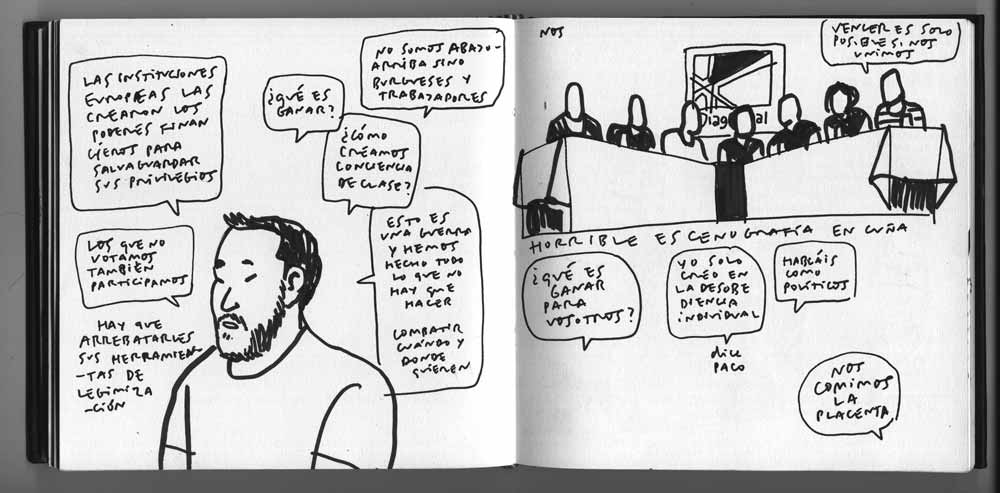 LAS INSTITUCIONES
EUROPEAS LAS
CREARON LOS
PODERES FINAN
CIEROS PARA
SALVAGUARDAR
SUS PRIVILEGIOS
¿QUÉ ES
GANAR?
NO SOMOS ABAJO-
ARRIBA SINO
BURGUESES Y
TRABAJADORES
¿CÓMO
CREAMOS
CONCIENCIA
DE CLASE?
LOS QUE NO
VOTAMOS
TAMBIÉN
PARTICIPAMOS
ESTO ES
UNA GUERRA
Y HEMOS
HECHO TODO
LO QUE NO
HAY QUE
HACER
COMBATIR
CUÁNDO Y
DONDE
QUIEREN
HAY QUE
ARREBATARLES
SUS HERRAMIEN-
-TAS DE
LEGIMIZA
-CIÓN
NOS
VENCER ES SOLO
POSIBLE SI NOS
UNIMOS
HORRIBLE ESCENOGRAFÍA EN CUÑA
¿QUÉ ES
GANAR
PARA
VOSOTROS?
YO SOLO
CREO EN
LA DESOBE
DIENCIA
INDIVIDUAL
dice
PACO
HABLÁIS
COMO
POLÍTICOS
NOS
COMIMOS
LA
PLACENTA